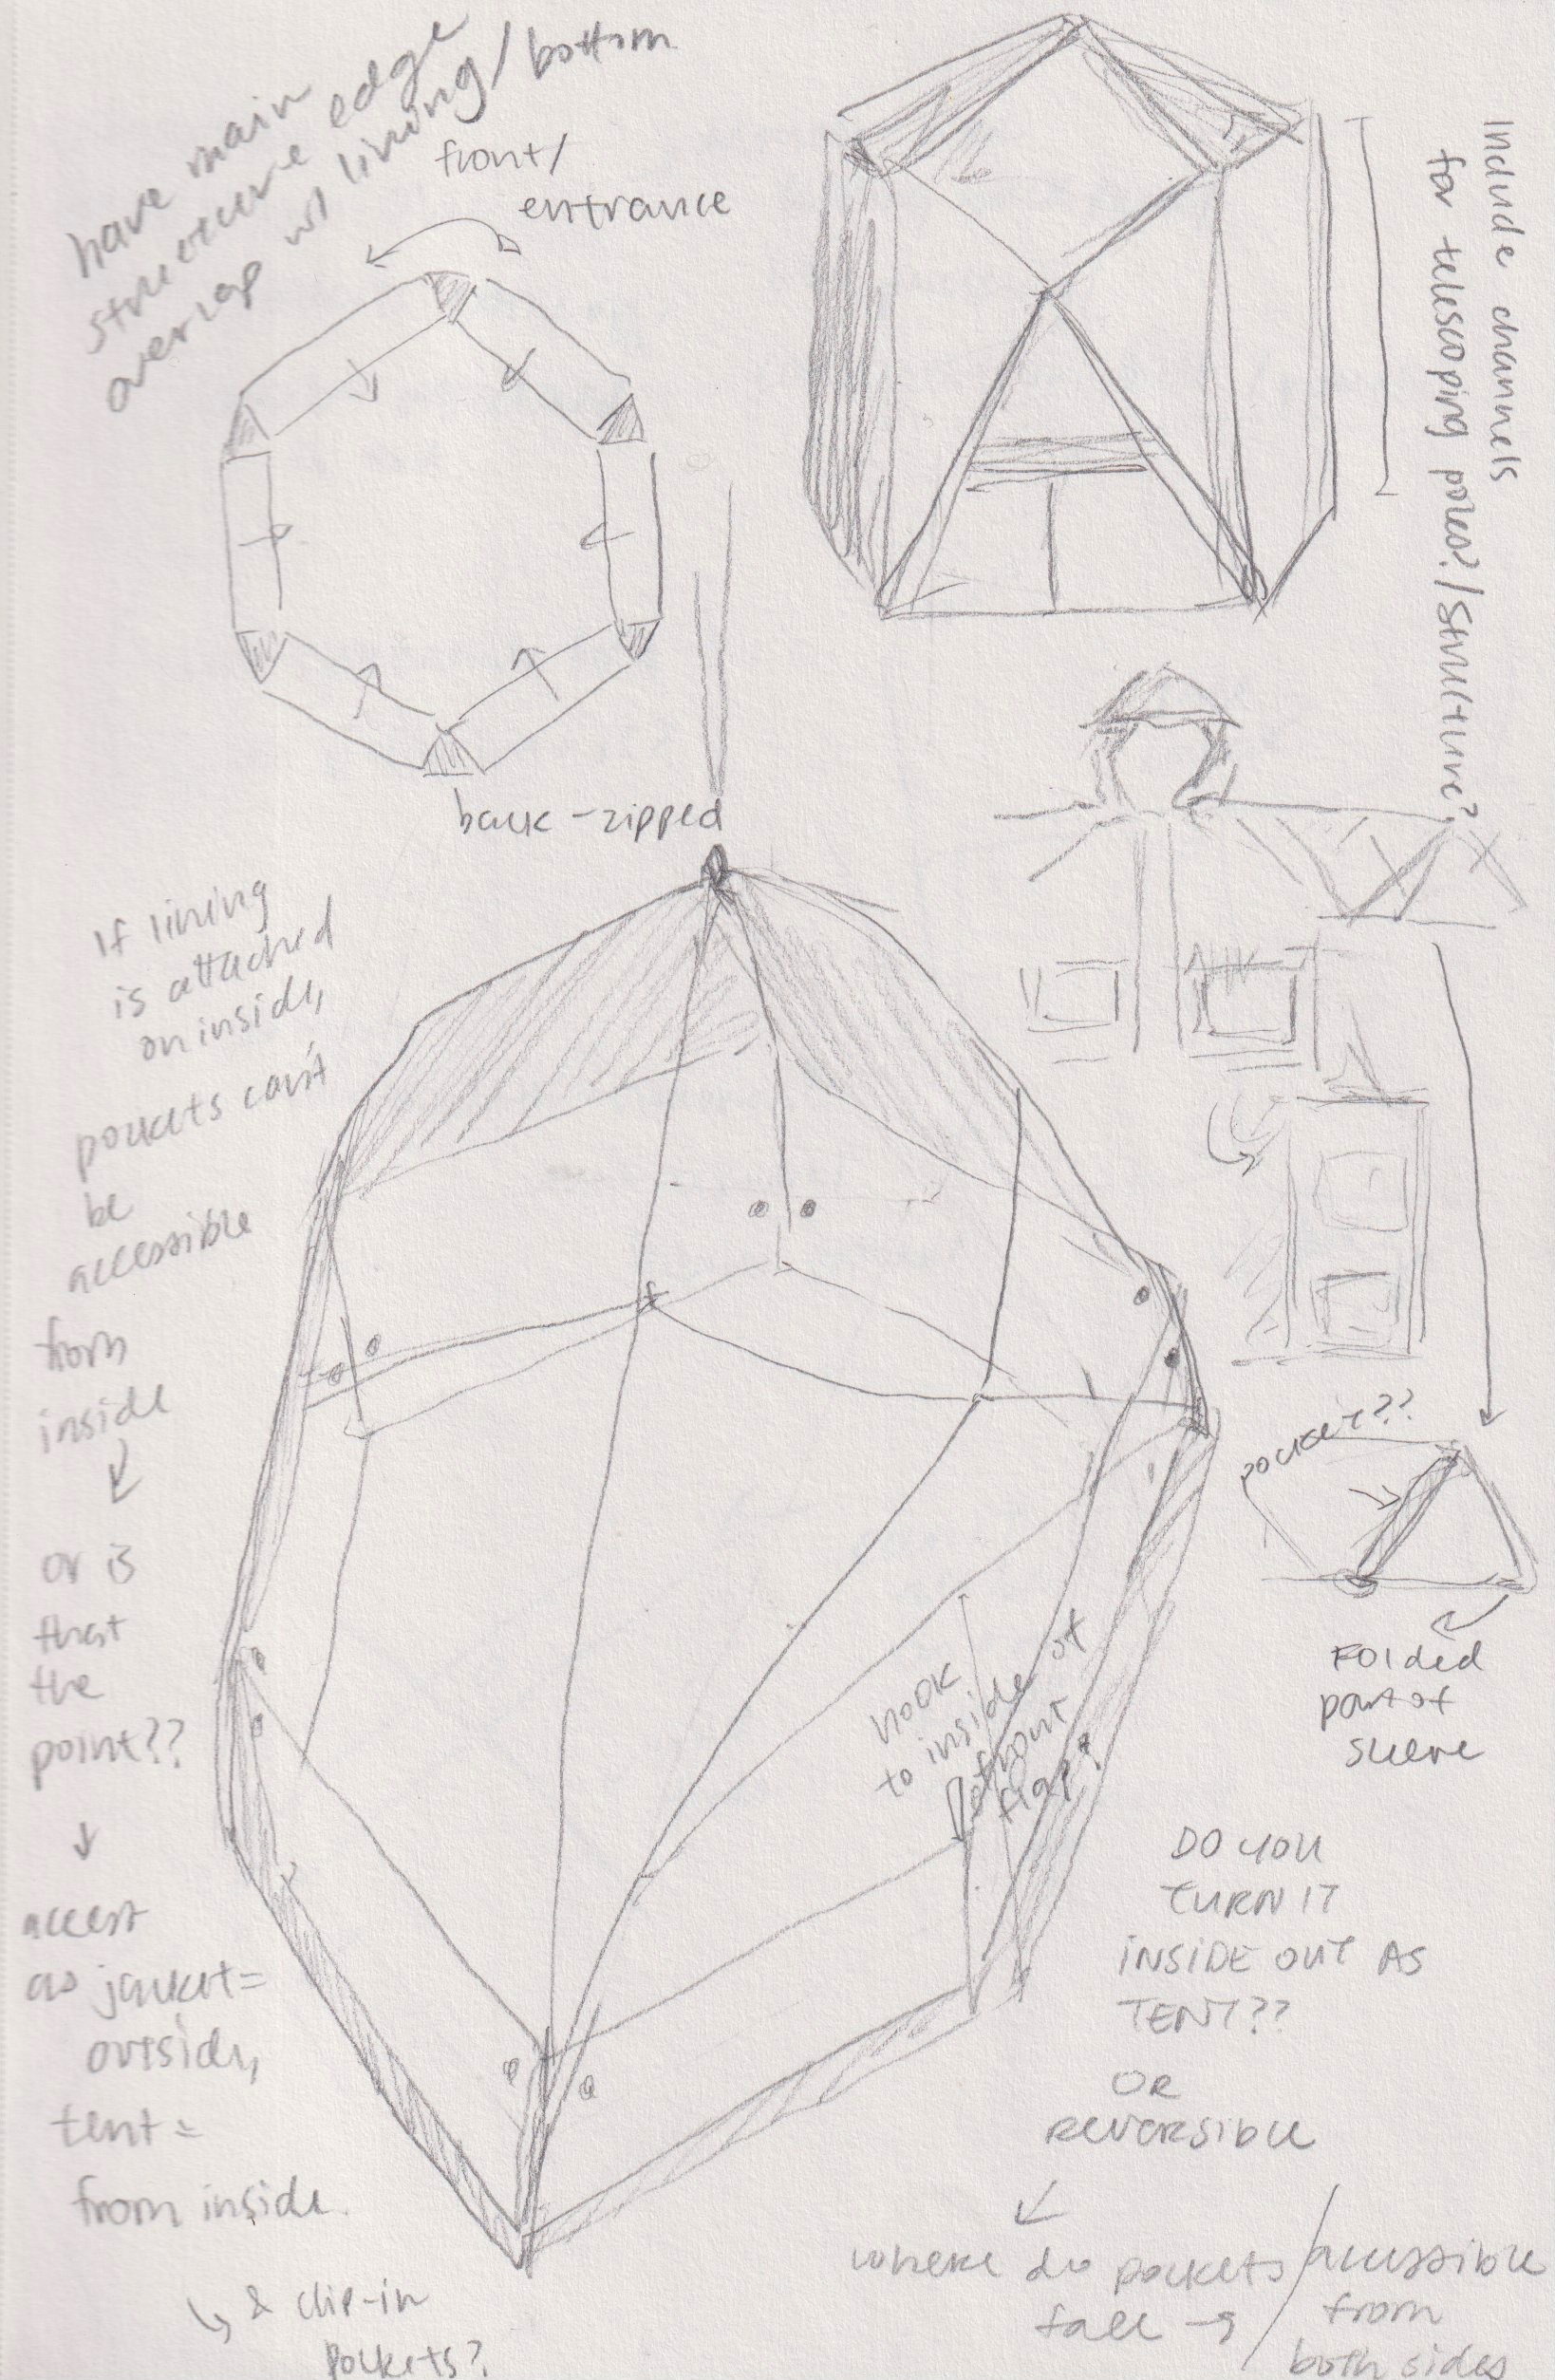 have main
structure edge
overlap w/ lining/bottom
front/
entrance
back-zipped
Include channels
for telescoping poles?/structure?
If lining
is attached
on inside,
pockets can't
be
accessible
from
inside
or is
that
the
point??
access
as jacket=
outside,
tent =
from inside.
& clip-in
pockets?
pocket??
FOlded
part of
sleeve
hook
to inside of
front
flap?
DO YOU
TURN IT
INSIDE OUT AS
TENT??
OR
REVERSIBLE
where do pockets
fall
/accessible
from
both sides